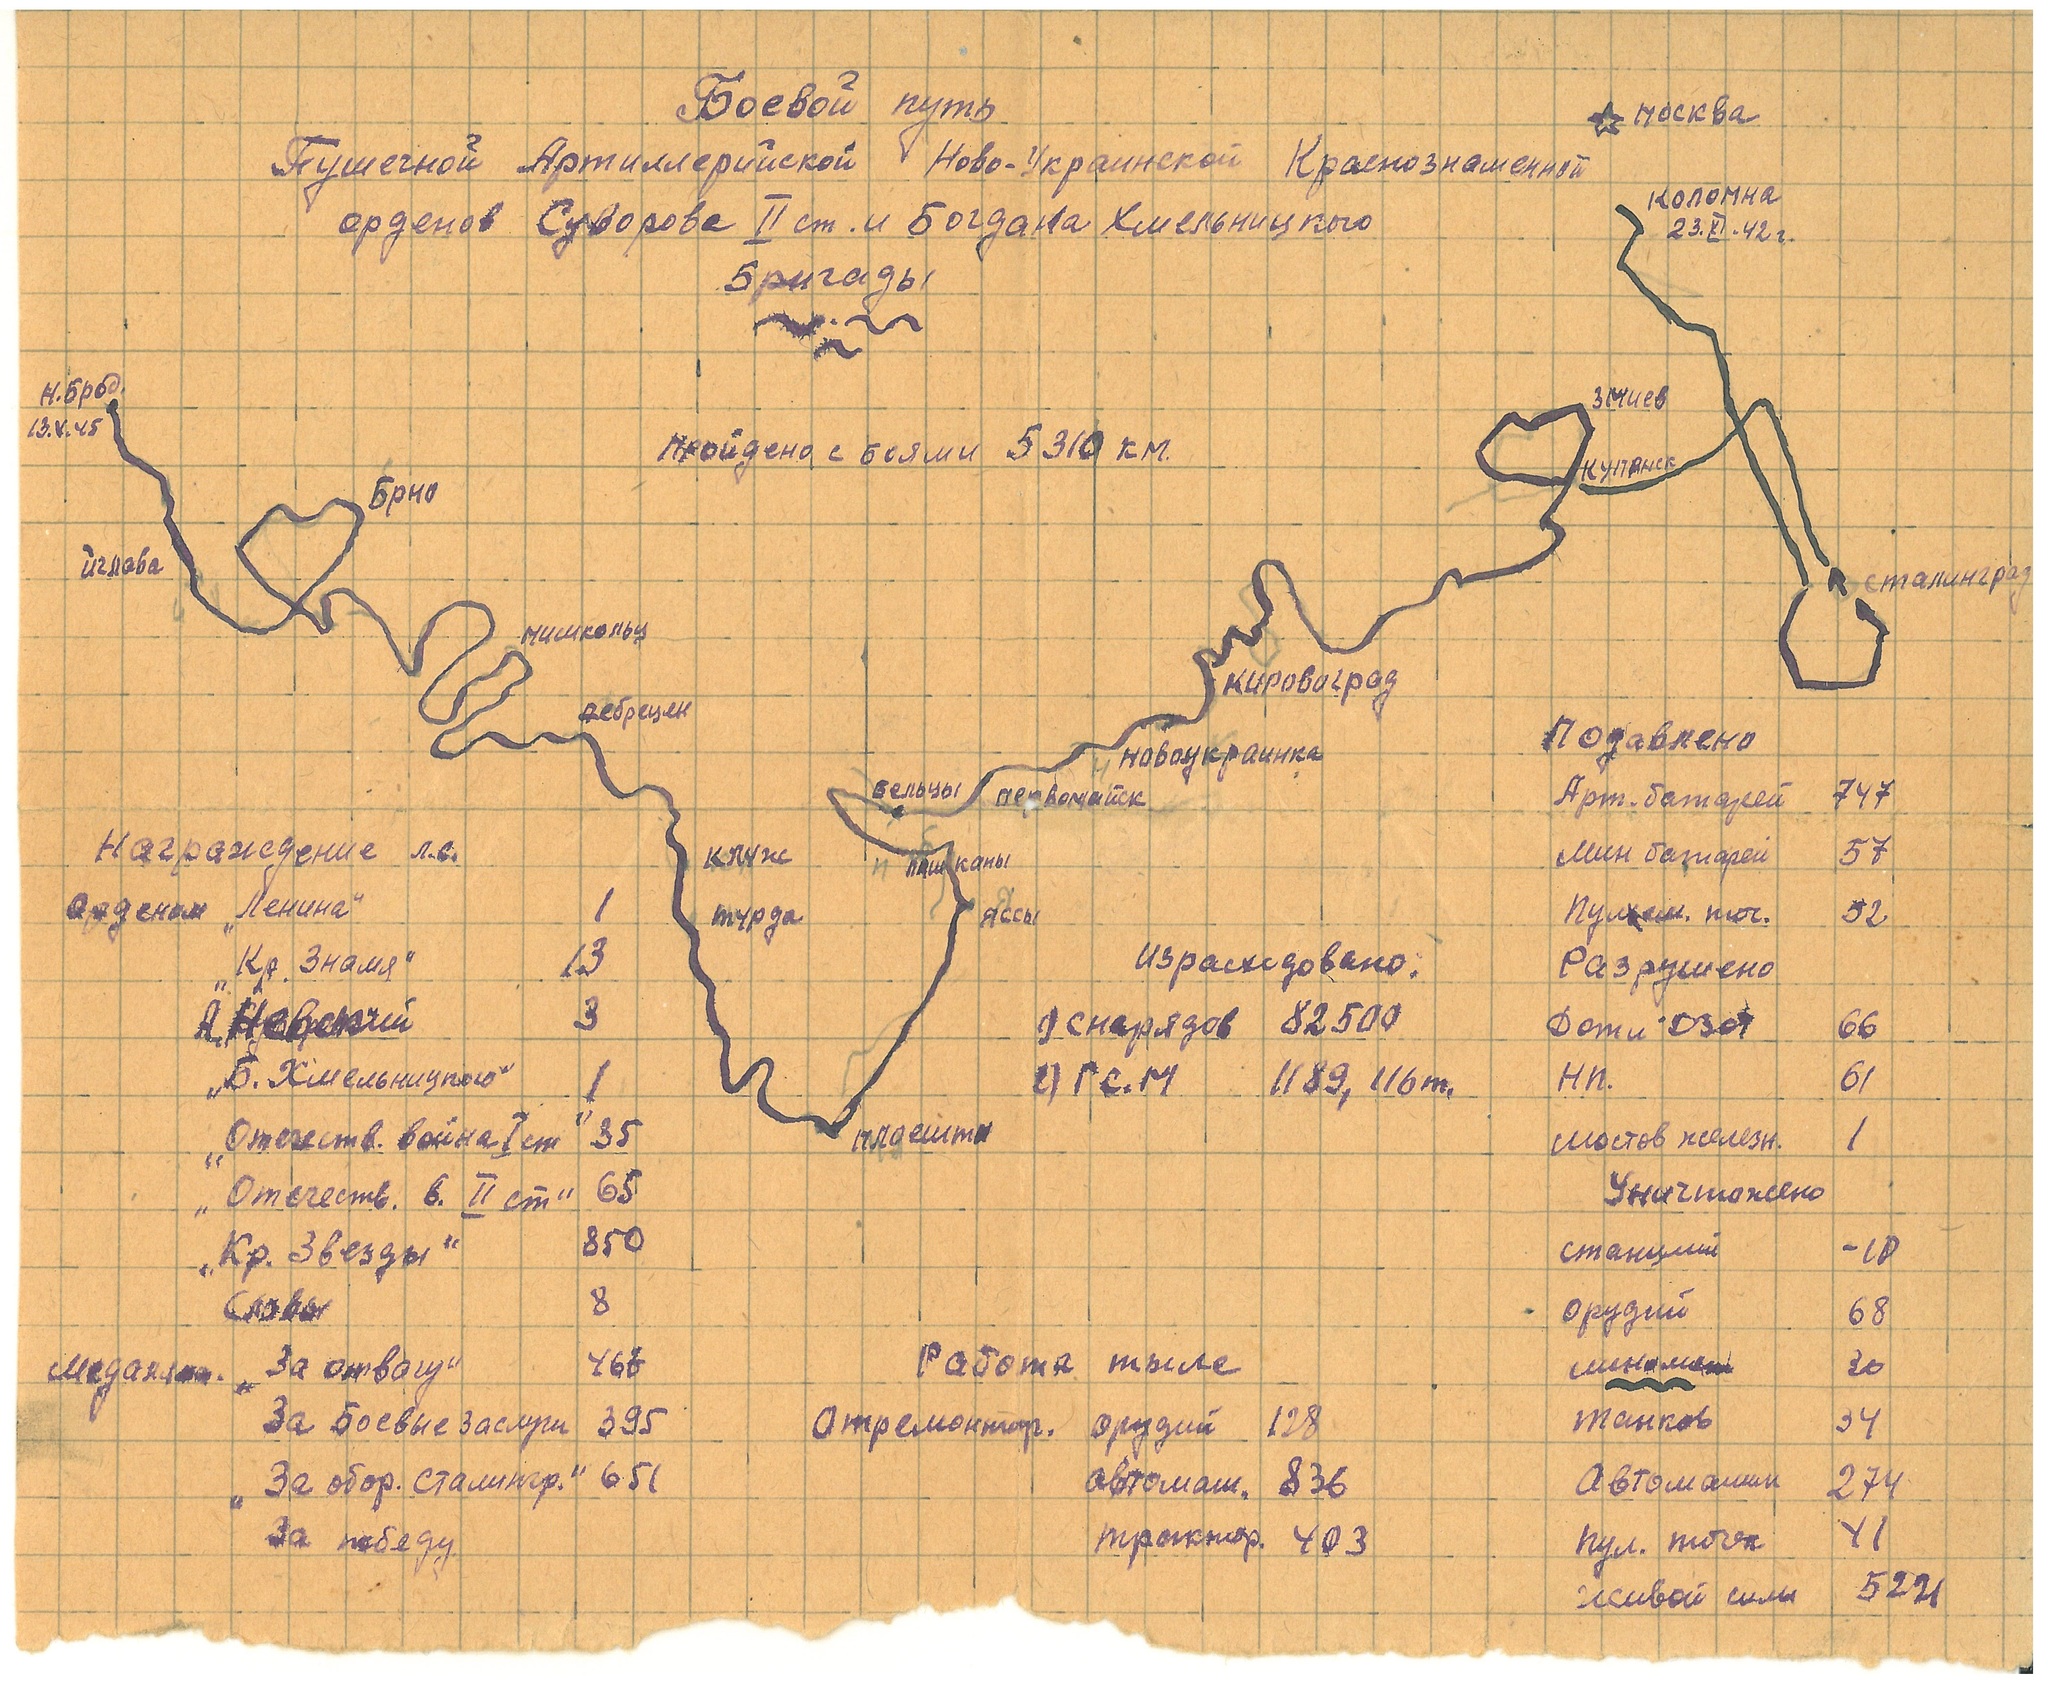 Боевой путь
Пушечной Артиллерийской Ново-Украинской Краснознаменной
орденов Суворова II ст. и Богдана Хмельницкого
Бригады
☆ Москва
Коломна
23.XI.42г.
Н.Брод.
13.V.45
Пройдено с боями 5310 км.
Змиев
Купянск
Брно
Йглава
Сталинград
Мишкольц
Кировоград
Дебрецен
Новоукраинка
Бельцы
Первомайск
Пашканы
Клуж
Турда
Яссы
Плоешти
Награждение л.с.
Орденом „Ленина" 1
„Кр. Знамя" 13
А. Невский 3
„Б. Хмельницкого" 1
„Отечеств. война I ст" 35
„Отечеств. в. II ст" 65
„Кр. Звезды" 850
Славы 8
Медалям. „За отвагу" 468
За Боевые заслуги 395
„За обор. Сталингр." 651
За победу
Израсходовано:
1) снарядов 82500
2) Г.С.М 1189,116т.
Работа тыле
Отремонтир. орудий 128
автомаш. 836
трактор. 403
Подавлено
Арт. батарей 747
Мин батарей 57
Пулем. точ. 52
Разрушено
66
НП. 61
Мостов железн. 1
Уничтожено
станций -10
орудий 68
миномет 30
танков 34
Автомашин 274
Пул. точек 41
Живой силы 5221